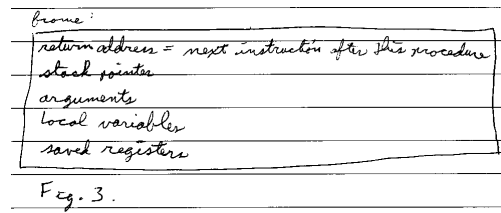 frame:
return address = next instruction after this procedure
stack pointer
arguments
local variables
saved registers
Fig. 3.